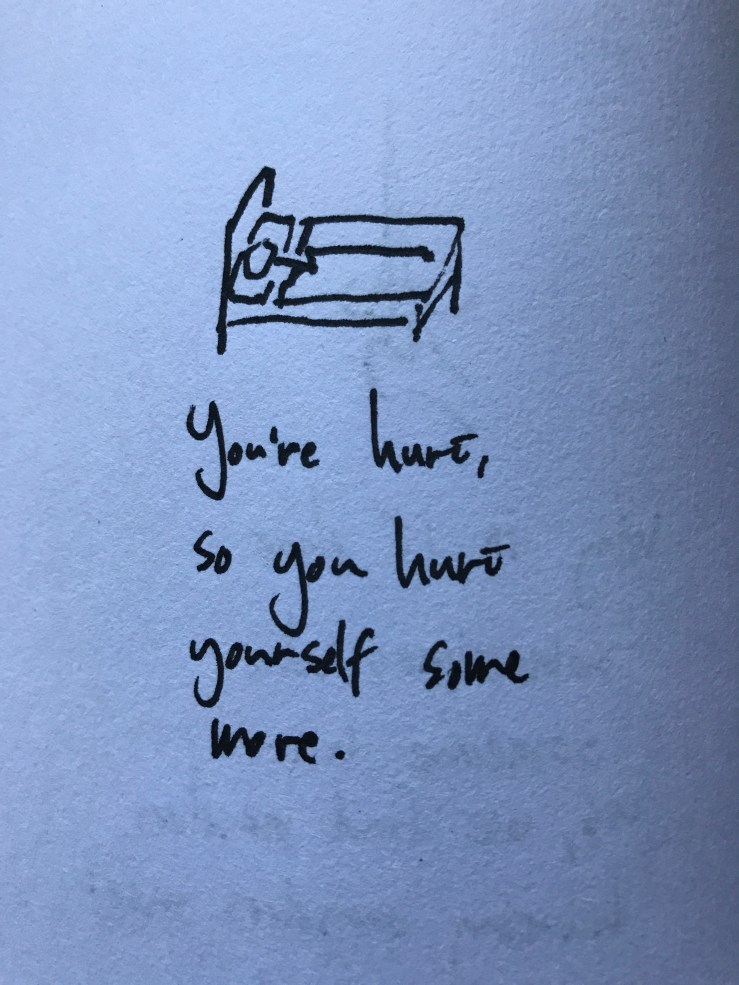 You're hurt,
so you hurt
yourself some
more.